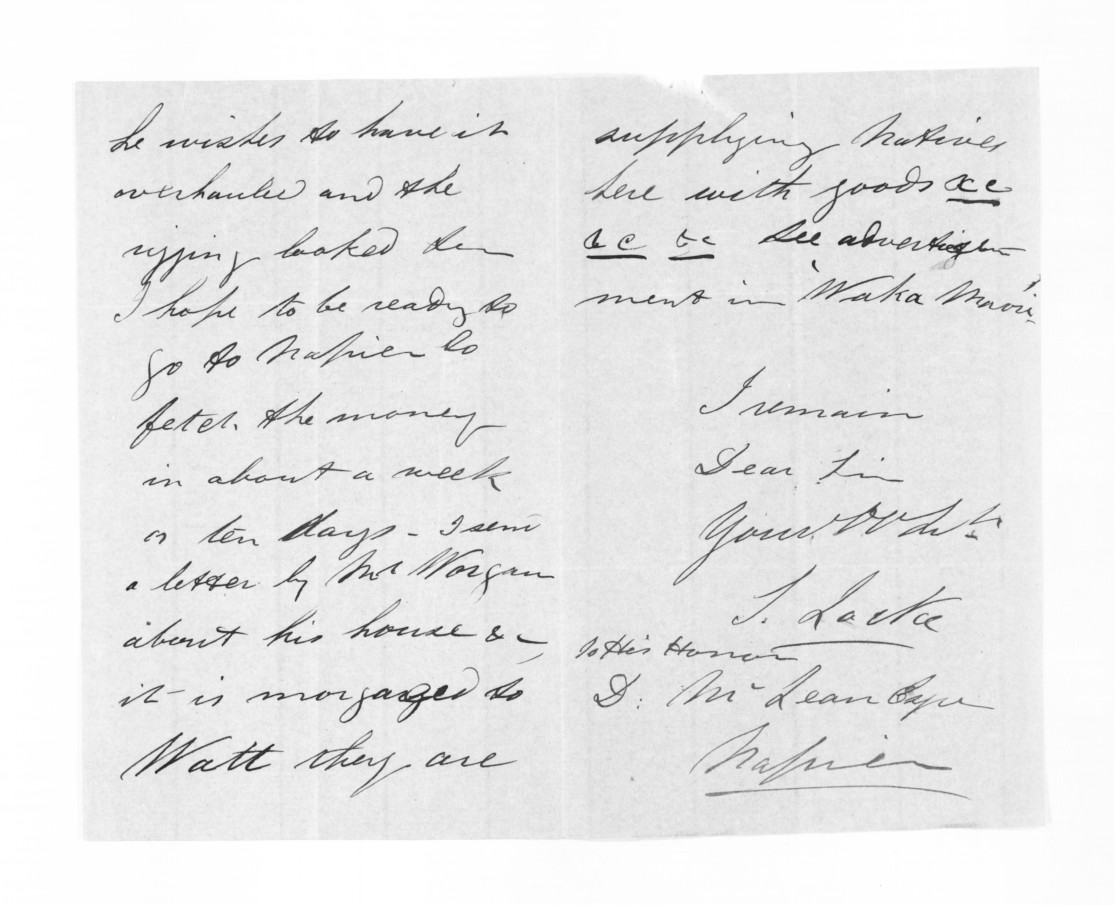 he wishes to have it
overhauled and the
rigging looked to
I hope to be ready to
go to Napier to
fetch the money
in about a week
or ten days - I sent
a letter by Mr Worgan
about his house &c,
it is morgaged to
Watt they are
supplying Natives
here with goods &c
&c &c see advertise
ment in "Waka Maori"
I remain
Dear Sir
Your
S. Locke
To His Honor
D. McLean Esqre
Napier